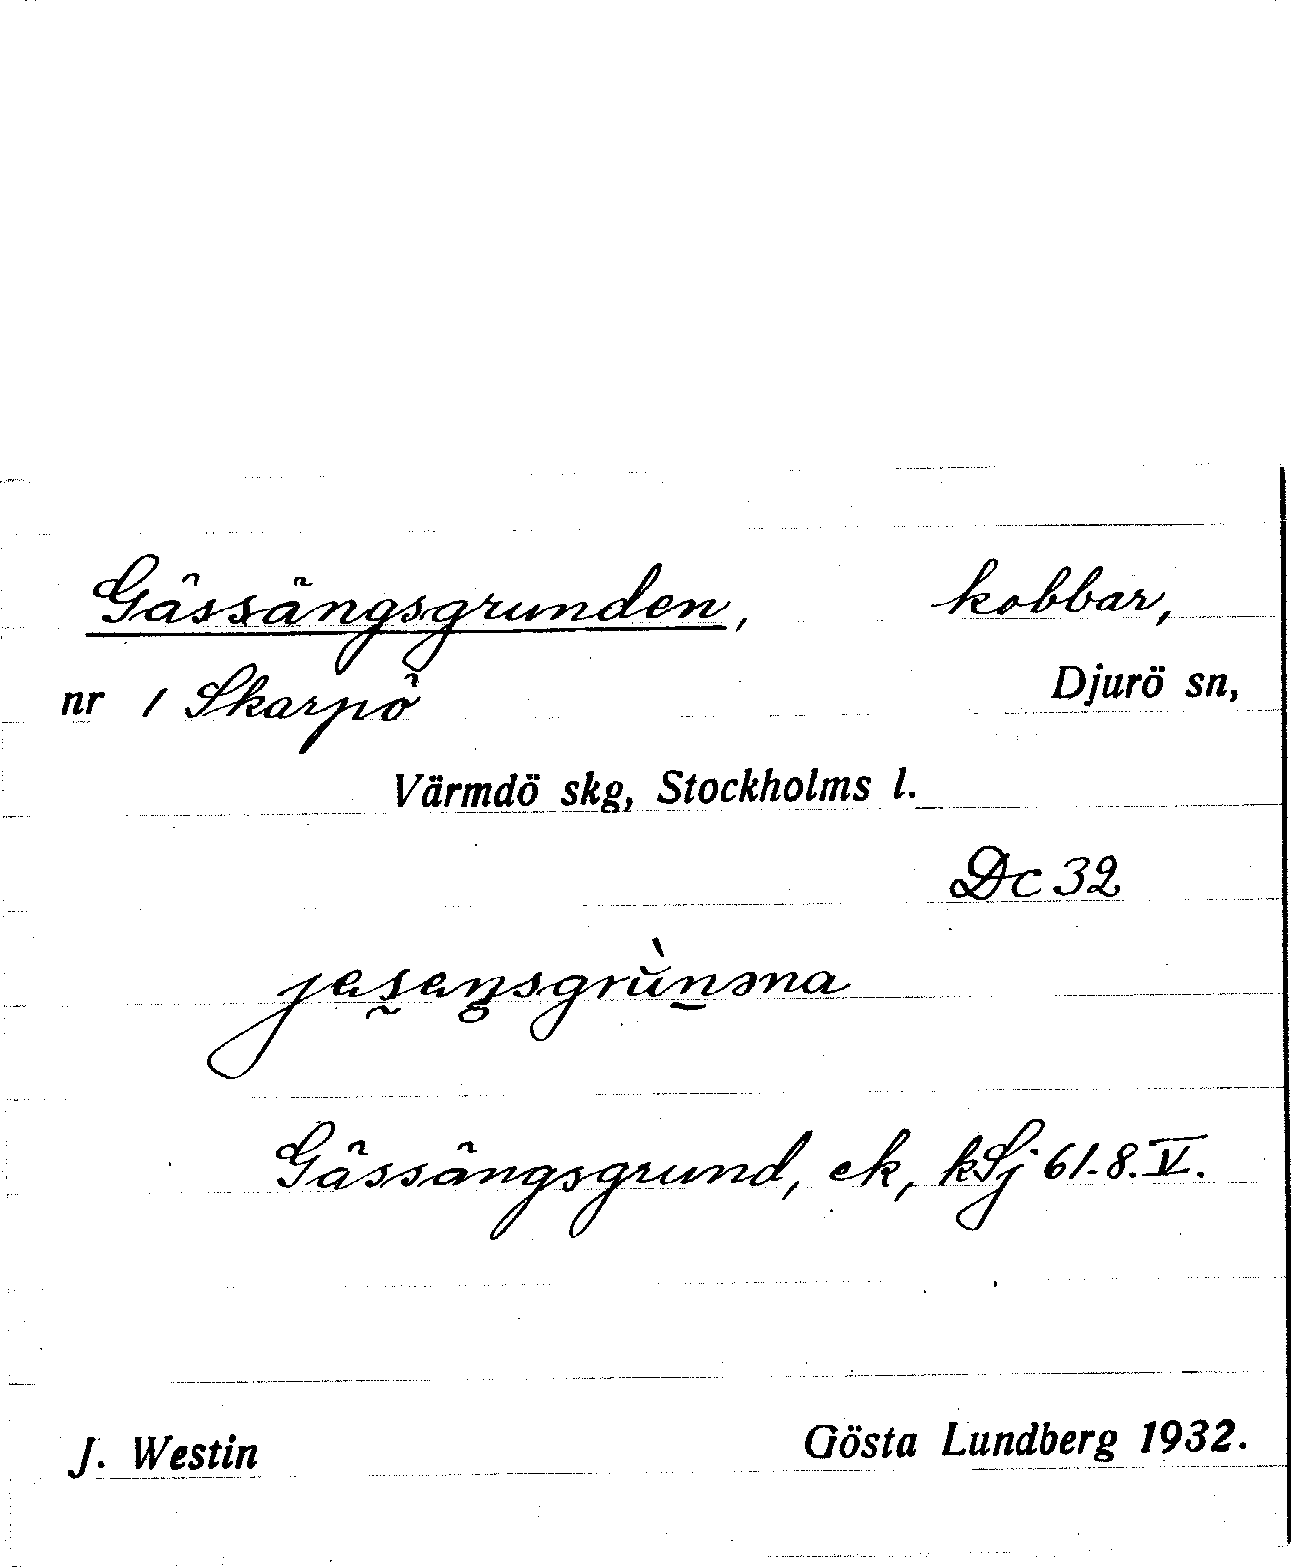 Gässängsgrunden, kobbar,
nr 1 Skarpö Djurö sn,
Värmdö skg, Stockholms l.
Dc 32
Gässängsgrund, ek, kSj 61-8.V.
J. Westin Gösta Lundberg 1932.